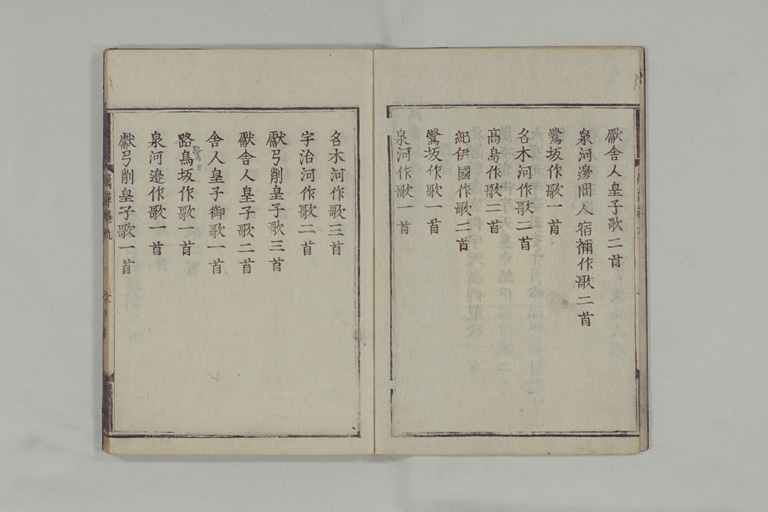 獻舎人皇子歌二首
泉河邊間人宿禰作歌二首
鷺坂作歌一首
名木河作歌二首
高島作歌二首
紀伊國作歌二首
鷺坂作歌一首
泉河作歌一首
名木河作歌三首
宇治河作歌二首
獻弓削皇子歌三首
獻舎人皇子歌二首
舎人皇子御歌一首
路鳥坂作歌一首
泉河邊作歌一首
獻弓削皇子歌一首